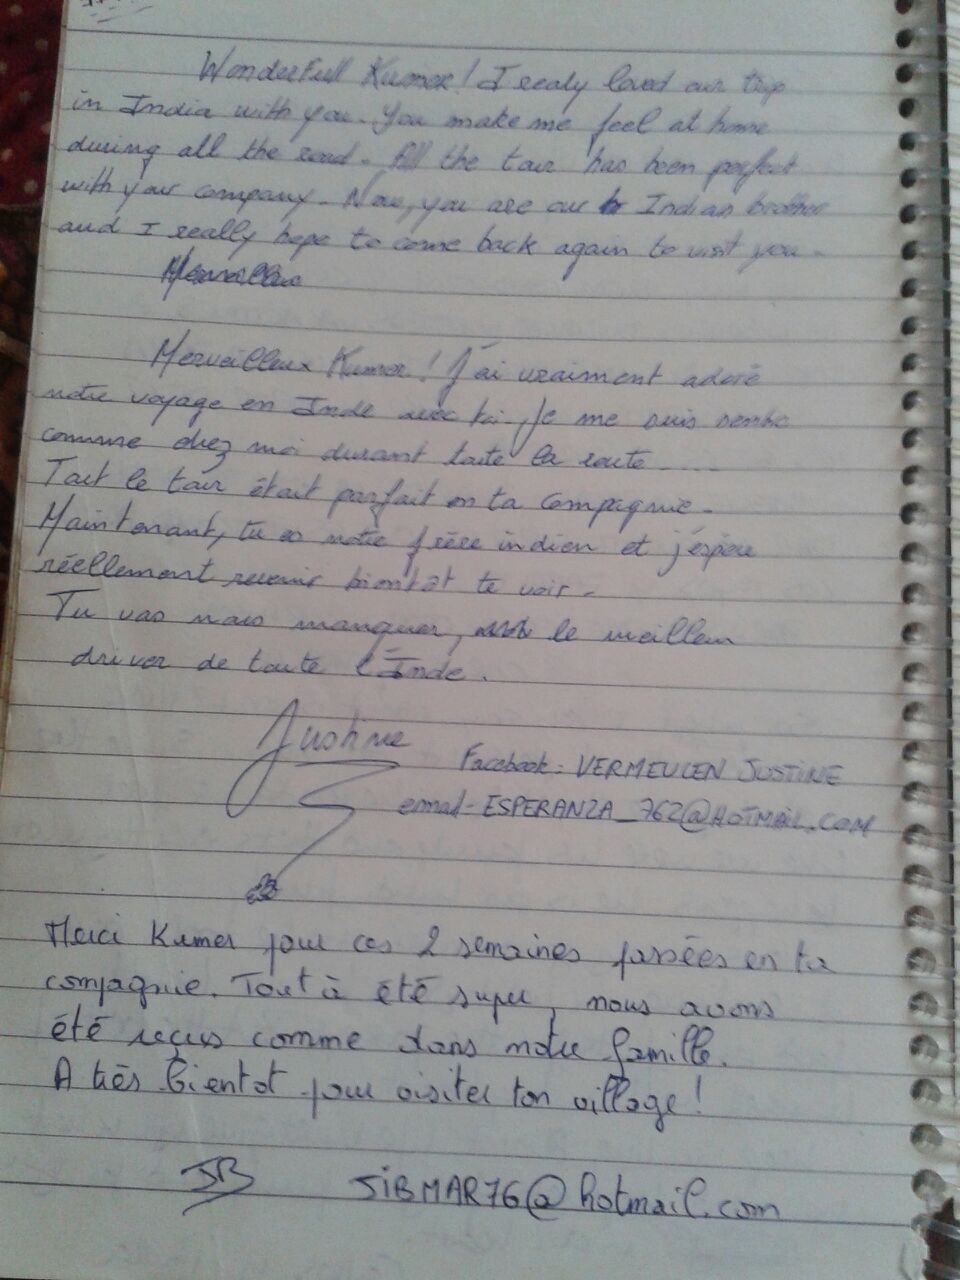 Wonderfull Kumer! I realy loved our trip
in India with you. You make me feel at home
during all the road. All the tour has been perfect
with your company. Now, you are our Indian brother
and I really hope to come back again to visit you.
Merveilleux Kumer! J'ai vraiment adoré
notre voyage en Inde avec toi. Je me suis sentie
comme chez moi durant toute la route....
Tout le tour était parfait en ta compagnie.
Maintenant, tu es notre frère indien et j'espère
réellement revenir bientôt te voir.
Tu vas nous manquer, le meilleur
driver de toute l'Inde.
Justine
Facebook: VERMEULEN JUSTINE
email- ESPERANZA_762@HOTMAIL.COM
Merci Kumer pour ces 2 semaines passées en ta
compagnie. Tout à été super, nous avons
été reçus comme dans notre famille.
A très bientot pour visiter ton village!
JB JIBMAR76@hotmail.com